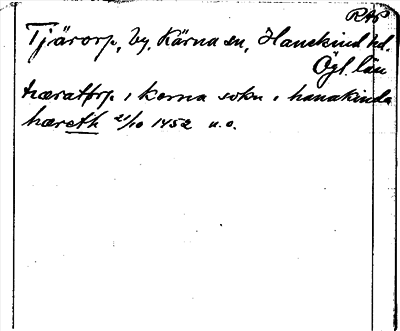 RAP
Tjärorp, by, Kärna sn, Hanekind hd.
Ögl. län
træratorp i kærna sokn i hanakinda
hæreth 21/10 1452 u.o.